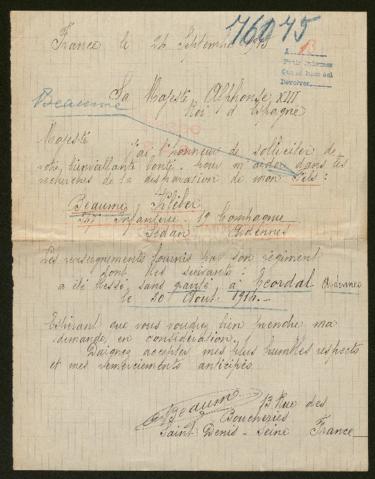 76075
France le 26 Septembre 1915
Sa Majesté Alphonse XIII
Roi d'Espagne
Beaume
Majesté
J'ai l'honneur de solliciter de
votre bienveillante bonté pour m'aider dans les
recherches de la destination de mon fils :
Beaume Kléber
Infanterie 12 Compagnie
Sedan Ardennes
Les renseignements fournis par son régiment
sont les suivants :
a été blessé sans gravité à Ecordal
le 30 Août 1914.
Espérant que vous voudrez bien prendre ma
demande en considération.
Daignez accepter mes plus humbles respects
et mes remerciements anticipés
Beaume 13 Rue des
Boucheries
Saint Denis - Seine France